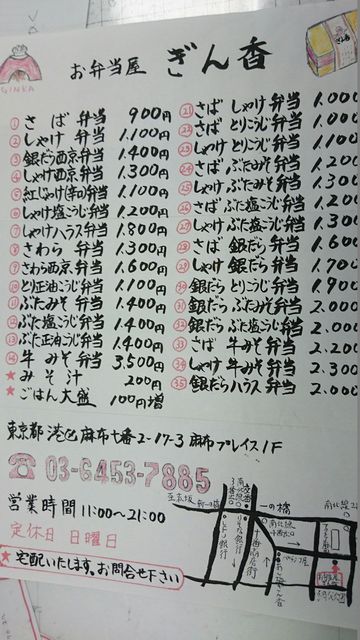 GINKA
お弁当屋 ぎん香
① さば 弁当 900円
② しゃけ 弁当 1.100円
③ 銀だら西京弁当 1.400円
④ しゃけ西京弁当 1.300円
⑤ 紅じゃけ(辛口)弁当 1.100円
⑥ しゃけ塩こうじ弁当 1.200円
⑦ しゃけハラス弁当 1.800円
⑧ さわら 弁当 1.300円
⑨ さわら西京弁当 1.600円
⑩ とり正油こうじ弁当 1.100円
⑪ ぶたみそ 弁当 1.400円
⑫ ぶた塩こうじ弁当 1.400円
⑬ ぶた正油こうじ弁当 1.400円
⑭ 牛 みそ 弁当 3.500円
★ みそ汁 200円
★ ごはん大盛 100円増
㉑ さば しゃけ弁当 1.000
㉒ さば とりこうじ弁当 1.000
㉓ しゃけ とりこうじ弁当 1.100
㉔ さば ぶたみそ弁当 1.200
㉕ しゃけ ぶたみそ弁当 1.300
㉖ さば ぶた塩こうじ弁当 1.200
㉗ しゃけ ぶた塩こうじ弁当 1.300
㉘ さば 銀だら 弁当 1.600
㉙ しゃけ 銀だら 弁当 1.700
㉚ 銀だら とりこうじ弁当 1.900
㉛ 銀だら ぶたみそ弁当 2.000
㉜ 銀だら ぶた塩こうじ弁当 2.000
㉝ さば 牛みそ弁当 2.200
㉞ しゃけ 牛みそ弁当 2.300
㉟ 銀だらハラス 弁当 2.000
東京都 港区 麻布十番2-17-3 麻布プレイス1F
☎ 03-6453-7885
営業時間 11:00〜21:00
定休日 日曜日
★ 宅配いたします。お問合せ下さい
一の橋
南北線